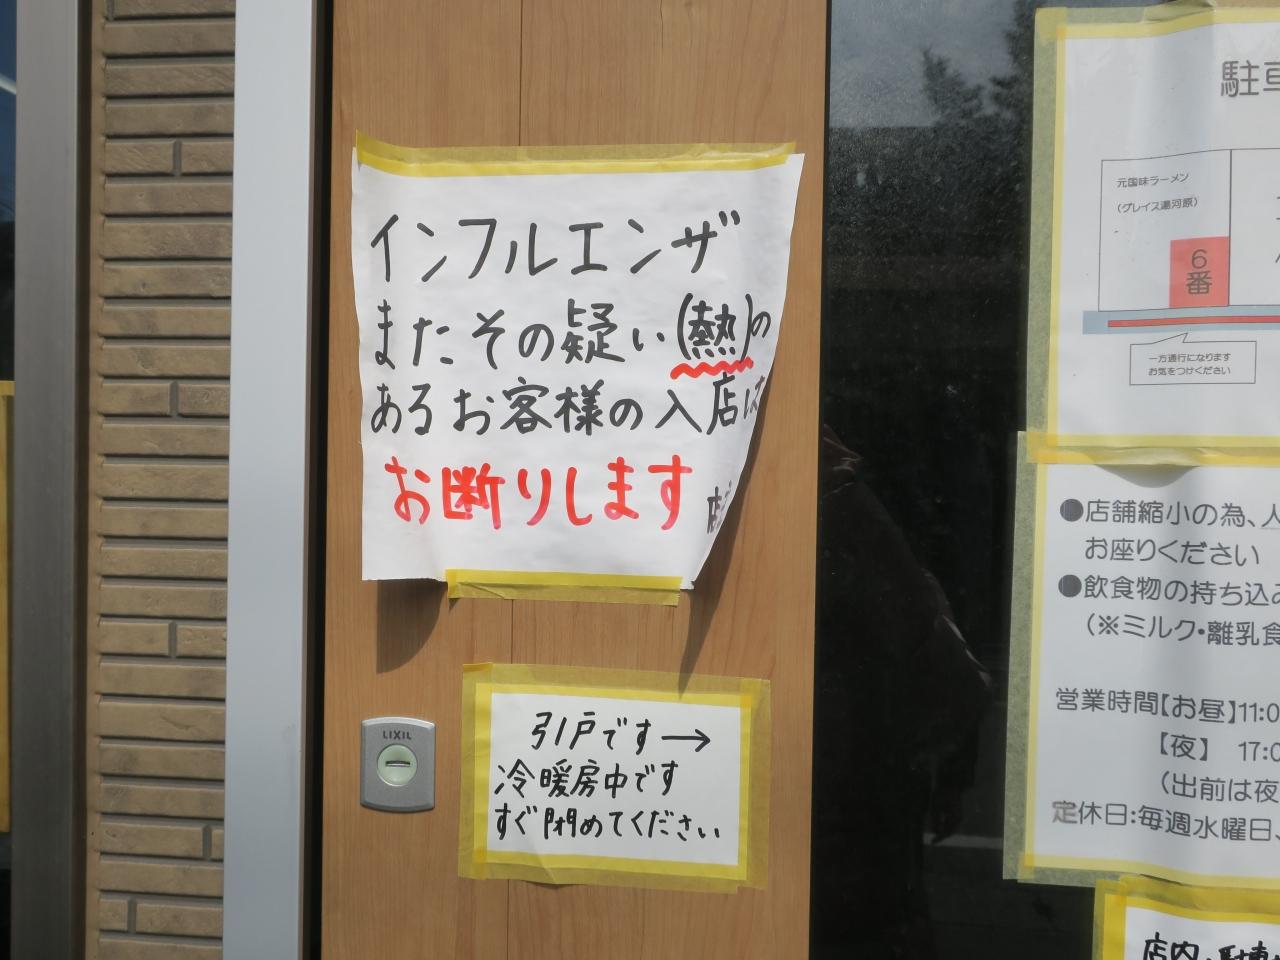 インフルエンザ
またその疑い(熱)の
あるお客様の入店は
お断りします
店
LIXIL
引戸です→
冷暖房中です
すぐ閉めてください
駐車
元国味ラーメン
(グレイス湯河原)
6番
一方通行になります
お気をつけください
●店舗縮小の為、人
お座りください
●飲食物の持ち込み
(※ミルク・離乳食
営業時間【お昼】11:0
【夜】 17:0
(出前は夜
定休日:毎週水曜日、
店内、駐車